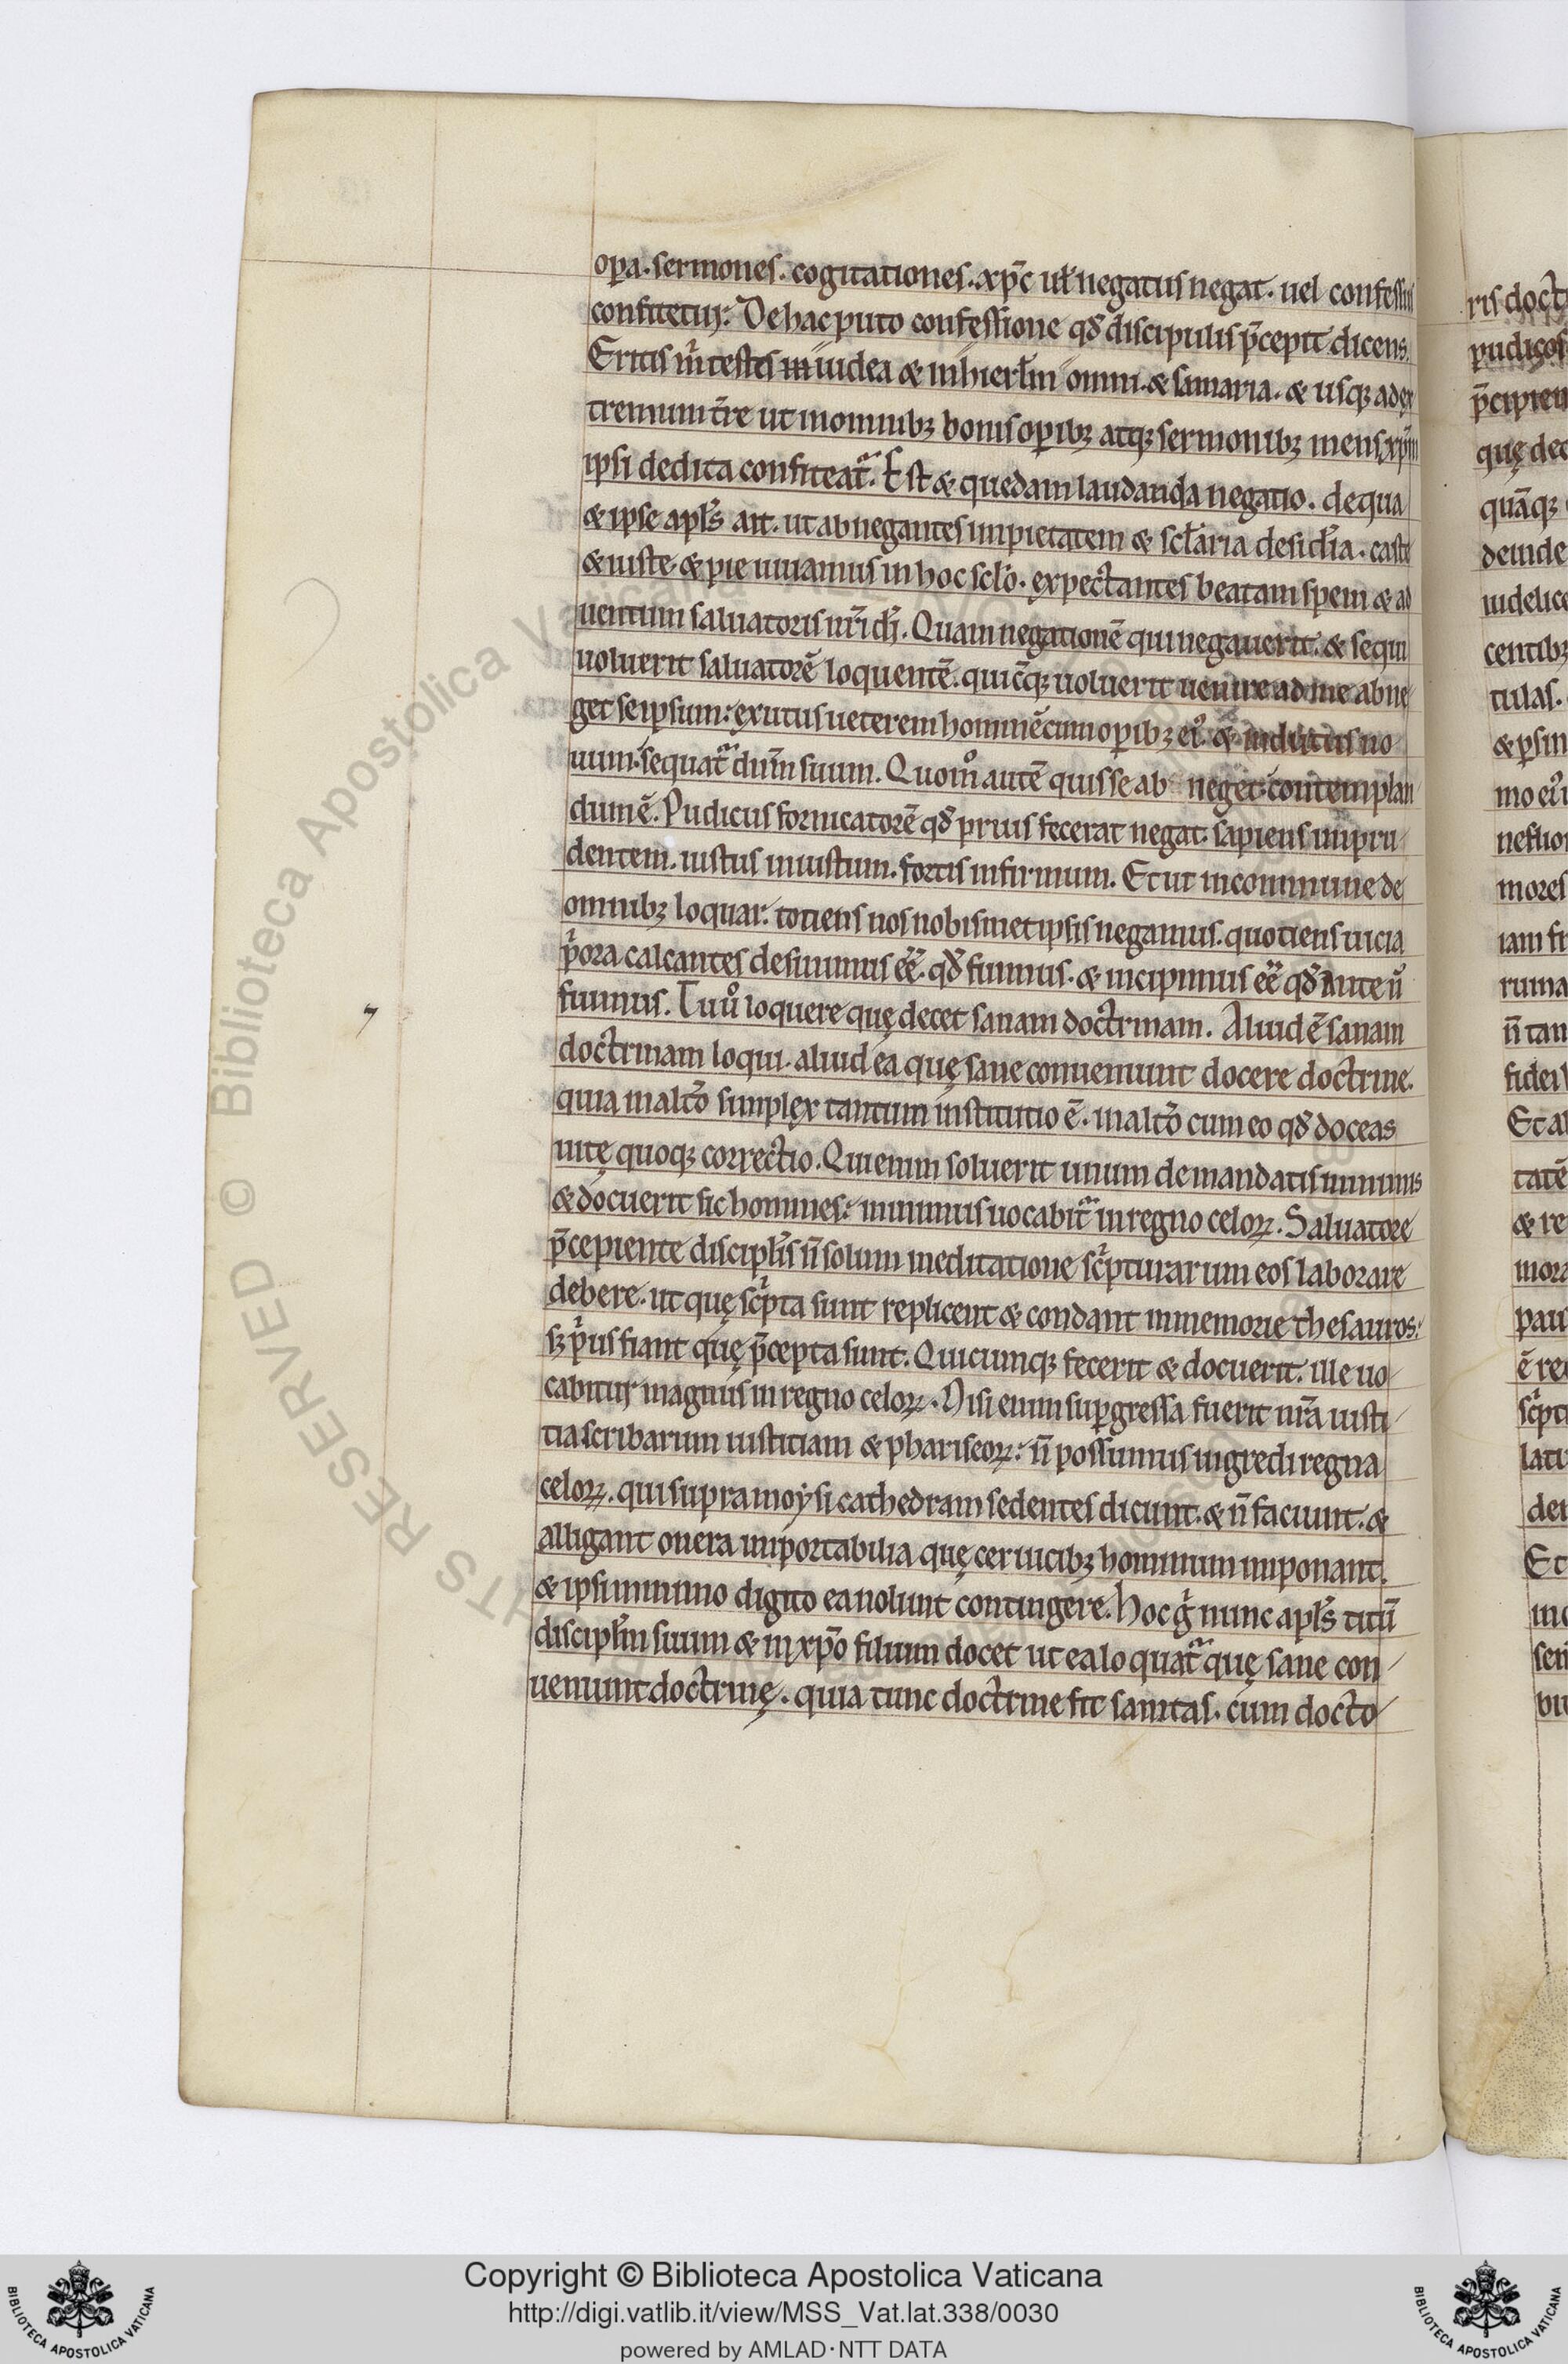 op̱a. sermones. cogitationes. xp̄c uł negatus negat. uel confessus
confitetur: De hac puto confessione qđ discipulis p̄cepit dicens.
Eritis m̄ testes in iudea & in hierłm omni. & samaria. & usq; ad ex
tremum t̄re ut in omnib; bonis op̱ib; atq; sermonib; mens xp̄m
ipsi dedita confiteat᷑. Est & quedam laudanda negatio. de qua
& ipse apłs ait. ut abnegantes impietatem & scłaria desid̄ia. caste
& iuste. & pie uiuamus in hoc scło. expectantes beatam spem & ad
uentum saluatoris nr̄i dī. Quam negationē qui negauerit. & sequi
uoluerit saluatorē loquentē. quicūq; uoluerit uenire ad me abne
get se ipsum: exutus ueterem hominē cum op̱ib; ei᷒. & indutus no
uum. sequat᷑ dūm suum. Quom̊ autē quis se ab neget contemplan
dum ē. Pudicus fornicatorē qđ prius fecerat negat. sapiens impru
dentem. iustus iniustum. fortis infirmum. Et ut in commune de
omnib; loquar: totiens nos nobismetipsis negamus. quotiens uicia
p̍ora calcantes desinimus eē. qđ fuimus. & incipimus eē qđ ante n̄
fuimus. Tu ů loquere quę decet sanam doctrinam. Aliud ē sanam
doctrinam loqui. aliud ea quę sane conueniunt docere doctrine.
quia in alto̅ simplex tantum institutio ē. in alto̅ cum eo qđ doceas
uitę quoq; correctio. Qui enim soluerit unum de mandatis minimis
& docuerit sic homines: minimus uocabit᷑ in regno celoꝝ. Saluatore
p̄cepiente discipłis n̄ solum meditatione sc̍pturarum eos laborare
debere. ut quę sc̍pta sunt replicent & condant in memorie thesauros:
s; p̍us fiant quę p̄cepta sunt. Quicumq; fecerit & docuerit. ille uo
cabitur magnus in regno celoꝝ. Nisi enim sup̱gressa fuerit nr̄a iusti
tia scribarum iustitiam & phariseoꝝ: n̄ possumus ingredi regna
celoꝝ. qui supra moysi cathedram sedentes dicunt. & n̄ faciunt. &
alligant onera importabilia quę ceruicib; hominum imponant.
& ipsi minimo digito ea nolunt contingere. Hoc g̍ nunc apłs titū
discipłm suum & in xp̄o filium docet ut ea loquat᷑ quę sane con
ueniunt doctrinę. quia tunc doctrine fit sanitas. cum docto
Copyright © Biblioteca Apostolica Vaticana
http://digi.vatlib.it/view/MSS_Vat.lat.338/0030
powered by AMLAD·NTT DATA